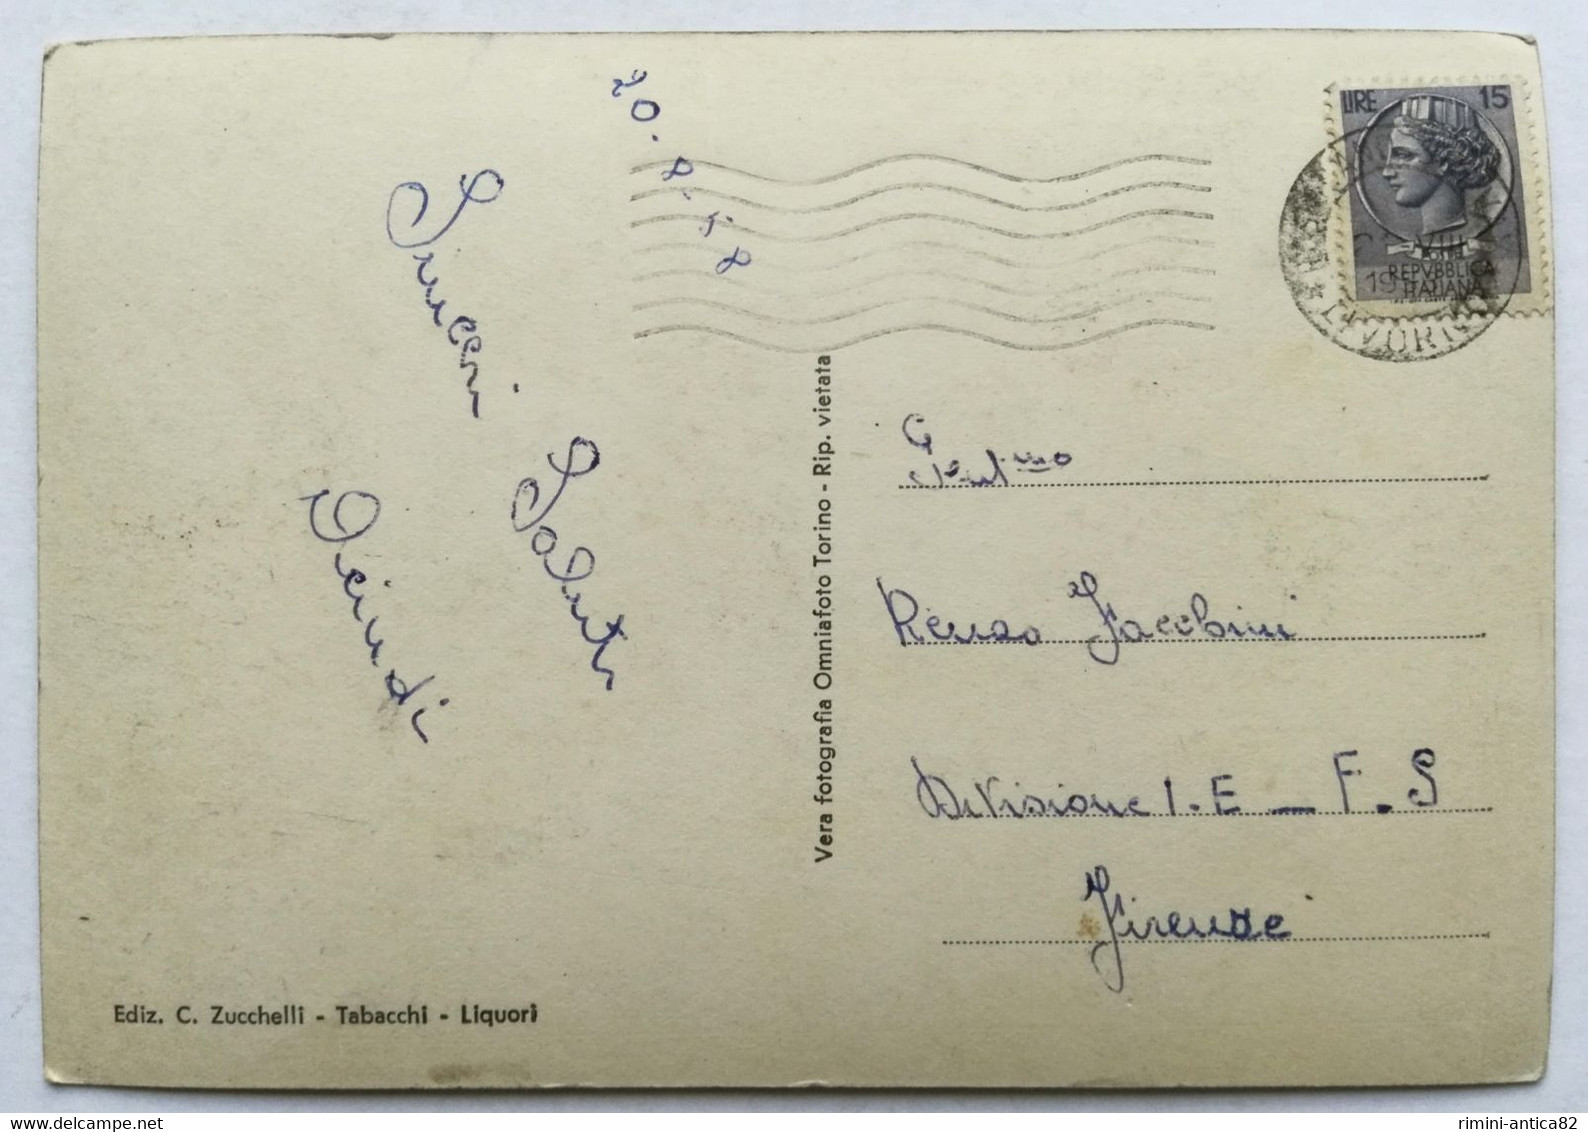 20.8.58
Sinceri
Saluti
LIRE 15
REPVBBLICA
ITALIANA
Vera fotografia Omniafoto Torino - Rip. vietata
Gent.mo
Renzo Facchini
Divisione I.E - F.S
Firenze
Ediz. C. Zucchelli - Tabacchi - Liquori
delcampe.net
rimini-antica82